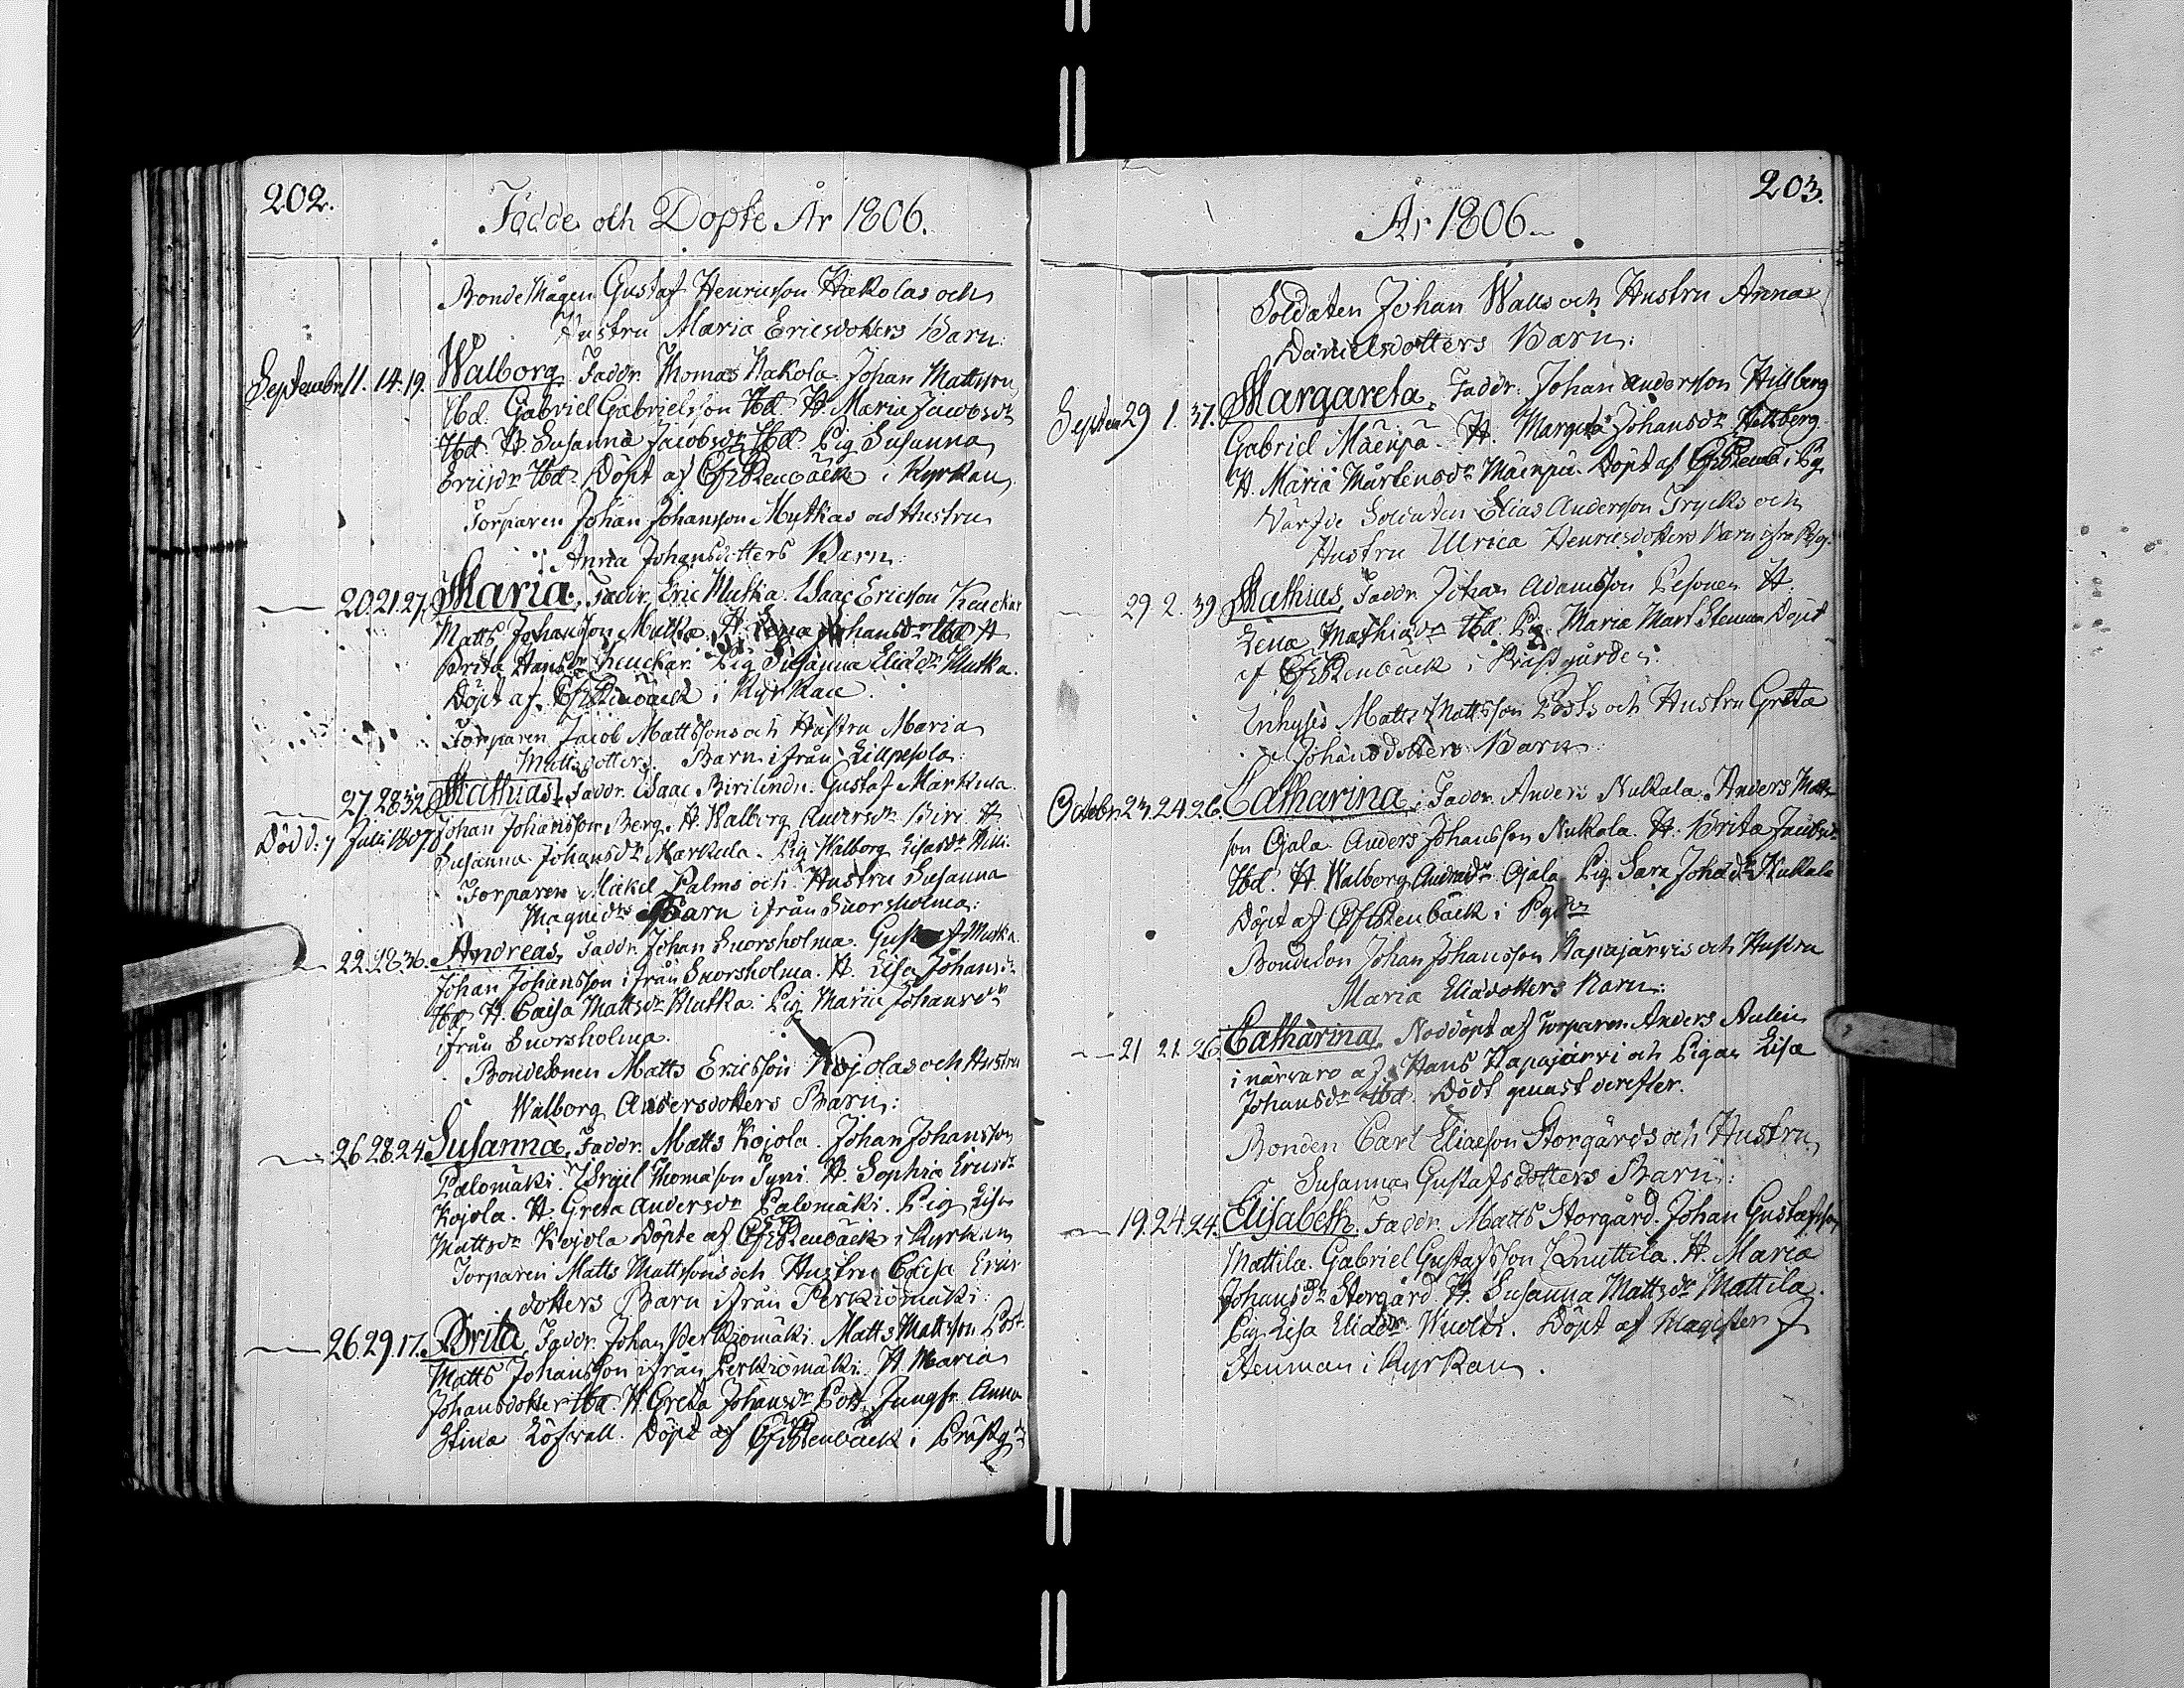 202.
Födde och Döpte År 1806.
BondeMågen Gustaf Henricsson Hakolas och
Hustru Maria Ericsdotters Barn:
Septembr. 11. 14. 19. Walborg, Faddr. Thomas Hakola. Johan Mattsson
Ibd. Gabriel Gabrielsson Ibd. H. Maria Jacobsdr
Ibd. H. Susanna Jacobsdr Ibd. Pig. Susanna
Ericsdr Ibd. Döpt af Renbäck i Kyrkan
Torparen Johan Johansson Mutkas och Hustru
Anna Johansdotters Barn:
20. 21. 27. Maria, Faddr. Eric Mutka. Isaac Ericsson Keuckar
Matts Johansson Mutka. H. Lena Johansdr Ibd. H.
Brita Hansdr Keuckar. Pig Susanna Eliædr Mutka.
Döpt af Renbäck i Kyrkan.
Torparen Jacob Mattssons och Hustru Maria
Mattsdotters Barn ifrån Lillpesola:
27. 28. 32. Mathias, Faddr. Isaac Birilindr. Gustaf Markula.
Död: 7 Julii 1807 Johan Johansson Berg. H. Walborg Andersdr Biri. H.
Susanna Johansdr Markula. Pig Walborg
Torparen Mickel Palms och Hustru Susanna
Magnidrs Barn ifrån Snorsholma:
22. 28. 36. Andreas, Faddr. Johan Snorsholma. Gustaf Mutka.
Johan Johansson ifrån Snorsholma. H. Lisa Johansdr
Ibd. H. Caisa Mattsdr Mutka. Pig Maria Johansdr
ifrån Snorsholma.
BondeSonen Matts Ericsson Kojolas och Hustru
Walborg Andersdotters Barn:
26. 28. 24. Susanna, Faddr. Matts Kojola. Johan Johansson
Palomäki. Thomasson Syri. H. Sophia Ericsdr
Kojola. H. Greta Andersdr Palomäki. Pig Lisa
Mattsdr Kojola Döpte af Renbäck i Kyrkan
Torparen Matts Mattssons och Hustru Caisa Erics
dotters Barn ifrån Perkiömäki:
26. 29. 17. Brita, Faddr. Johan Perkiömäki. Matts Mattsson Post.
Matts Johansson ifrån Perkiömäki. H. Maria
Johansdotter Ibd. H. Greta Johansdr Post. Jungfr. Anna
Stina Löfvall. Döpt af Renbäck i Prästg
203.
År 1806
Soldaten Johan Walls och Hustru Anna
Danielsdotters Barn:
Septem 29 1. 37. Margareta, Faddr. Johan Andersson Hillberg
Gabriel Mäenpä. H. Margeta Johansdr Hellberg
H. Maria Mårtensdr Mäenpä. Döpt af i Pg.
Värfde Soldaten Elias Andersson Trycks och
Hustru Ulrica Henricsdotters Barn
29. 2. 39 Mathias, Faddr. Johan Adamsson Pesonen H.
Lena Mathiædr Ibd. Pig. Maria Mart Stenman Döpt
af Renbäck i Prästgården.
Inhyses Matts Mattsson Posts och Hustru Greta
Johansdotters Barn:
October 23. 24. 26. Catharina, Faddr. Anders Nukala. Anders Matts
son Ojala. Anders Johansson Nukala. H. Brita Jacobsdr
Ibd. H. Walborg Andersdr Ojala Pig Sara Johadr Nukala
Döpt af Renbäck i Pg
Bondeson Johan Johansson Hapajärvis och Hustru
Maria Eliædotters Barn:
21 21. 26. Catharina, Noddöpt af Torparen Anders Aulin
i närvaro af Hans Hapajärvi och Pigan Lisa
Johansdr Ibd. Dödt genast derefter.
Bonden Carl Eliaeson Storgårds och Hustru
Susanna Gustafsdotters Barn:
19. 24. 24. Elisabeth, Faddr. Matts Storgård. Johan Gustafsson
Mattila. Gabriel Gustafsson Knuttila. H. Maria
Johansdr Storgård. H. Susanna Mattsdr Mattila.
Pig Lisa Eliædr Wuolti. Döpt af Magister J
Stenman i Kyrkan.